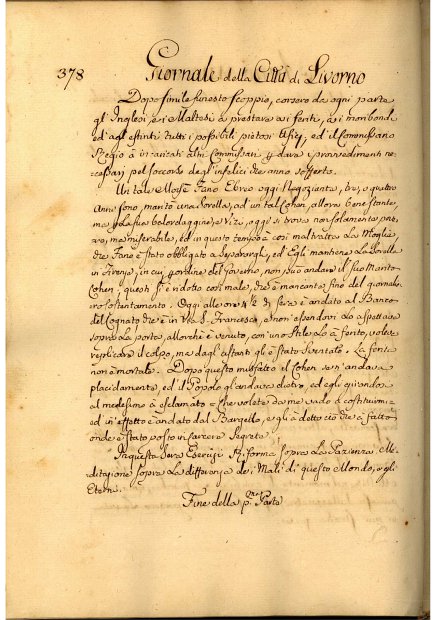 378
Giornale della Città di Livorno
Dopo simile funesto scoppio, corsero da ogni parte
gl'Inglesi, e i Maltesi à prestare ai feriti, ai moribondi
ed agl'estinti tutti i possibili pietosi Ufizj, ed il Commissario
Regio à incaricati altri Commissari p dare i provvedimenti ne-
cessarj pel soccorso degl'infelici che anno sofferto.
Un tale Moisè Fano Ebreo oggi Negoziante, tre, o quattro
Anni sono, maritò una Sorella, ad un tal Cohen, allora benestante,
ma p la sua balordaggine, e Vizi, oggi si trova non solamente pove-
ro, ma miserabile, ed in questo tempo à così maltratta La Moglie,
che Fano è stato obbligato a separargli, ed Egli mantiene La Sorella
in Firenze, in cui p ordine del Governo, non può andare il suo Marito
Cohen; questi si è ridotto così male, che è mancante fino del giornalie-
ro sostentamento. Oggi alle ore 4 ½ di sera è andato al Banco
del Cognato che è in Via S. Francesco, e non essendovi Lo à aspettato
sopra La porta, allorchè è venuto, con uno Stile Lo à ferito, voleva
replicare il colpo, ma dagl'astanti gli è stato sventato. La ferita
non è mortale. Dopo questo misfatto il Cohen se n'andava
placidamente, ed il Popolo gl'andava dietro, ed egli girandosi
al medesimo à esclamato = Che volete da me vado à costituirmi =
ed in effetto è andato dal Bargello, e gli à detto ciò che à fatto
onde è stato posto in Carcere Segreta.
In questa Sera Esercizj, Riforma sopra La Pazienza. Me-
ditazione sopra La differenza dei Mali di questo Mondo, e gli
Eterni.
Fine della p.ma Parte